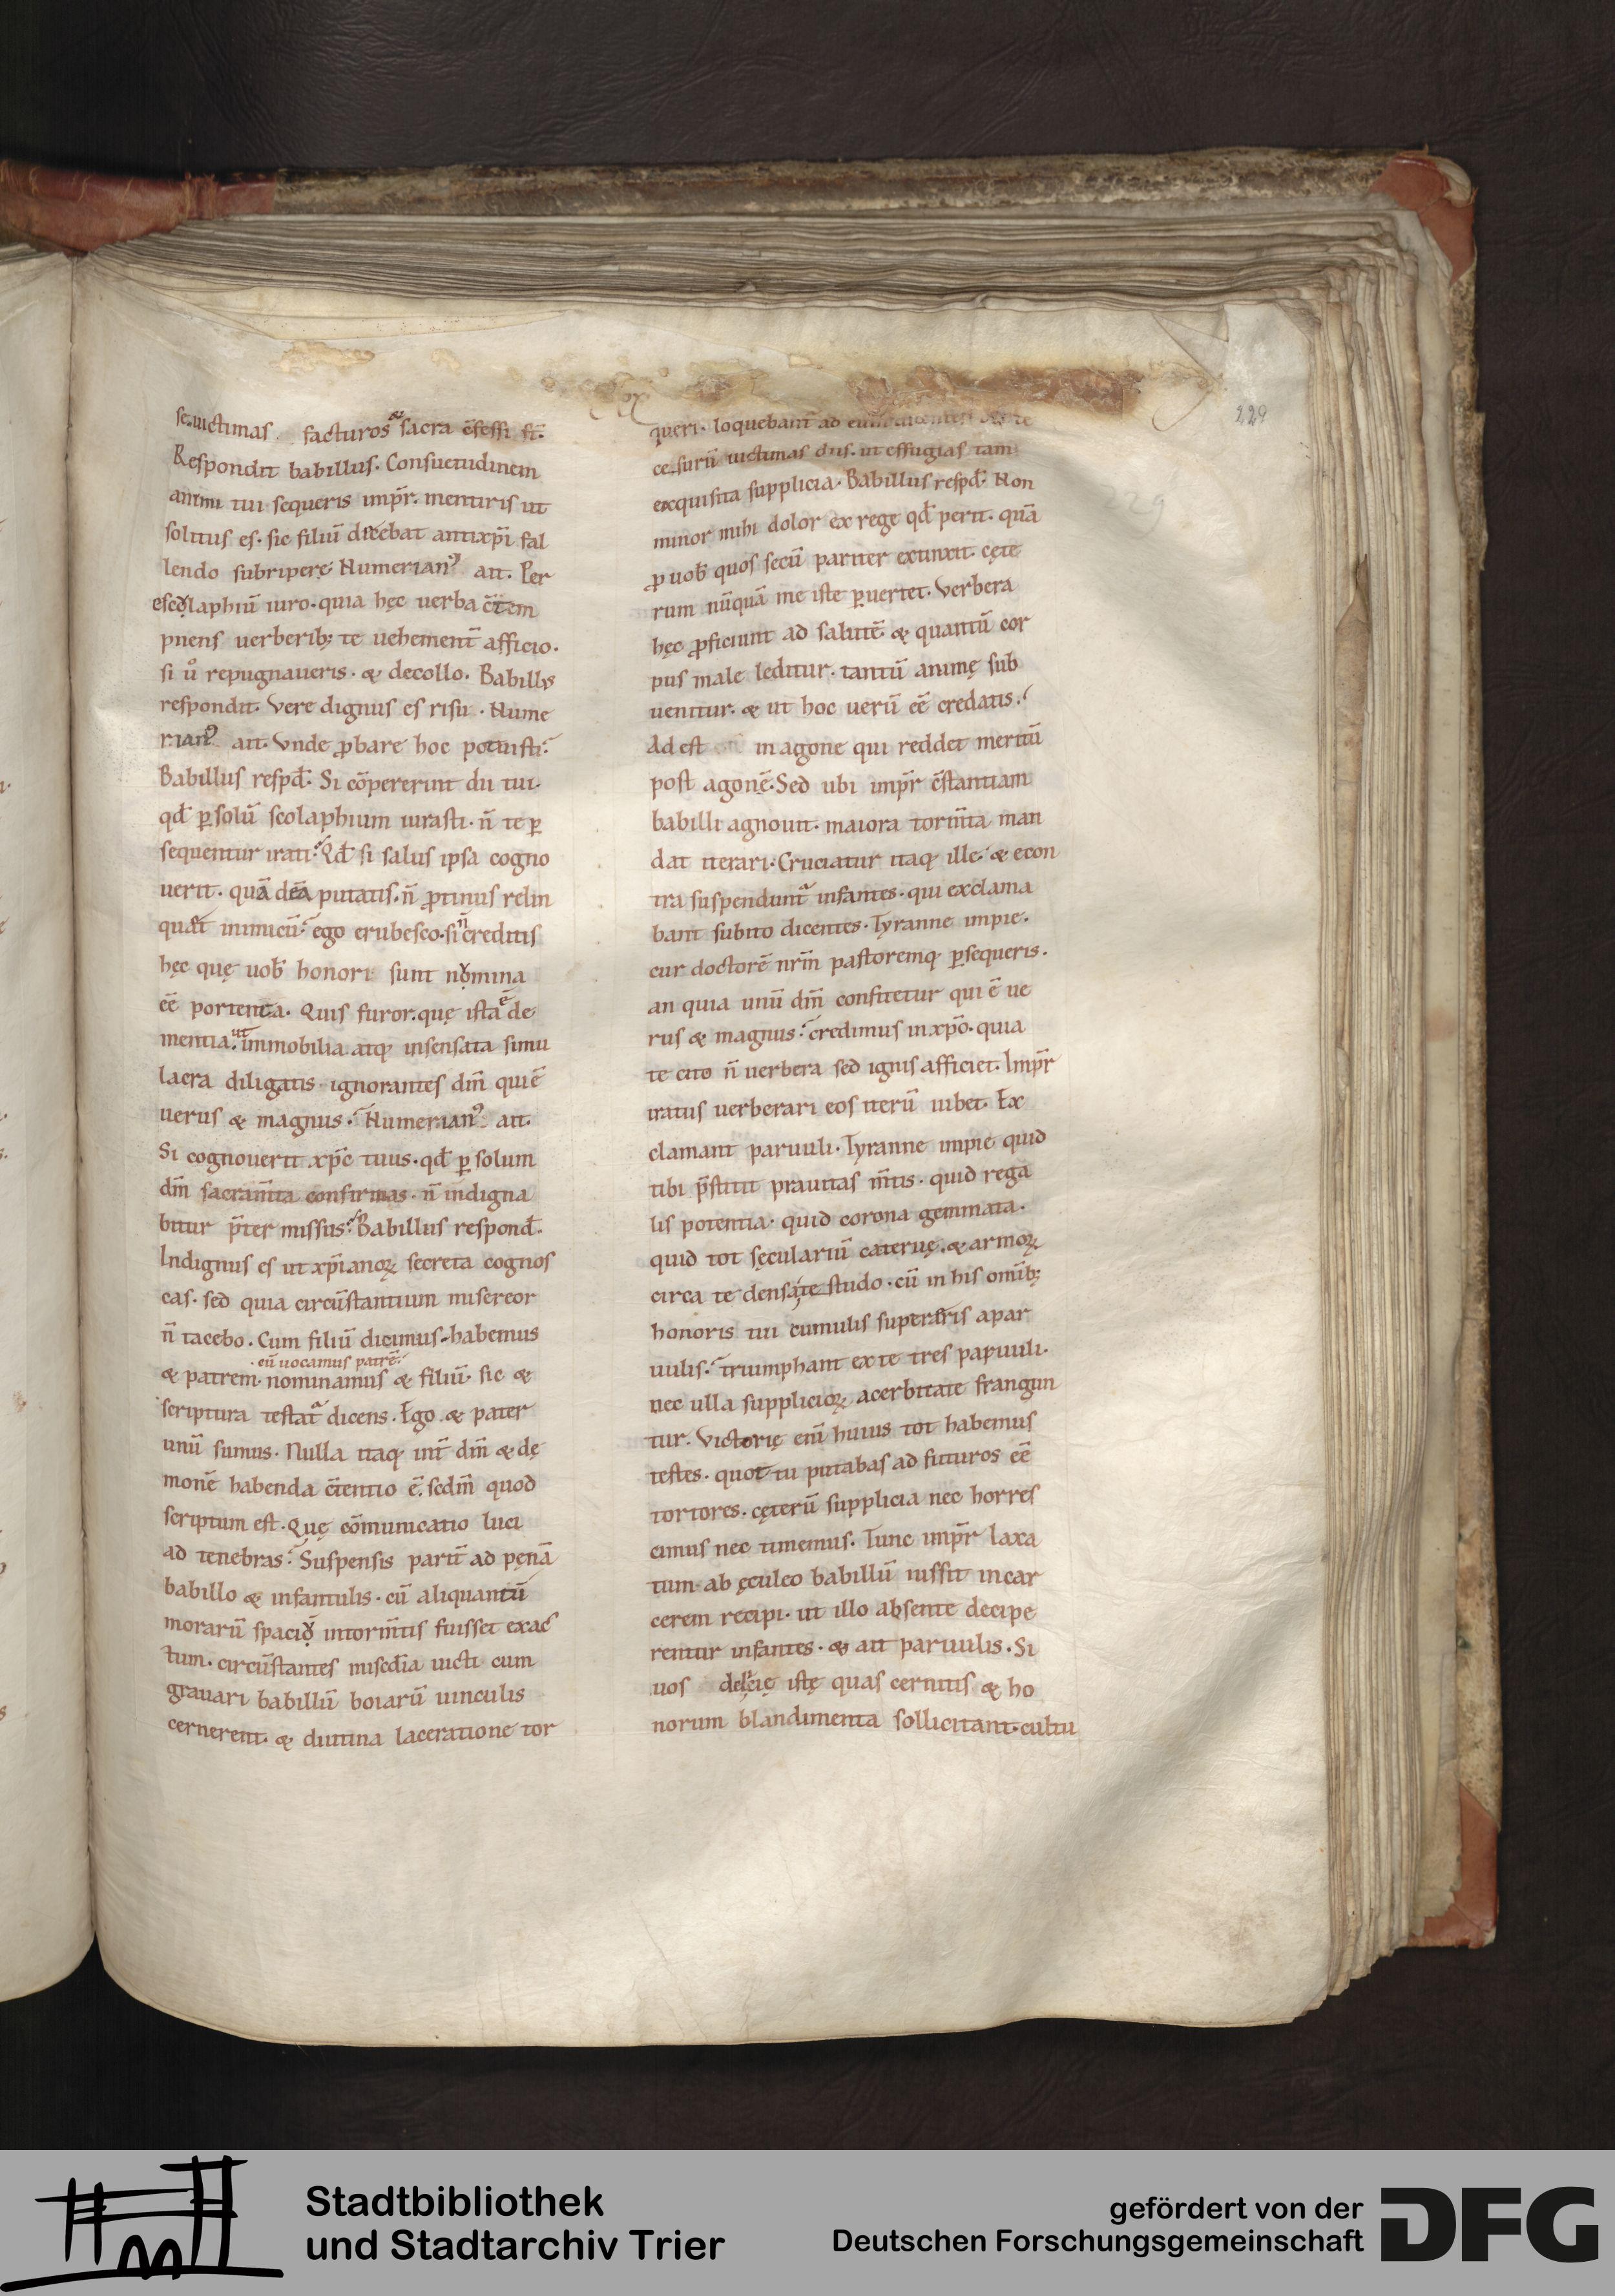 se uictimas facturos sacra c̄fessi st̄.
Respondit babillus. Consuetudinem
animi tui sequeris imp̄r. mentiris ut
solitus es. sic filiū dicebat antixp̄i fal
lendo subripere. Numerian⁹ ait. Per
escolaphiū iuro. quia hęc uerba c̄tem
pnens uerberib; te uehement̄ afficio.
si ů repugnaueris. & decollo. Babillus
respondit. Vere dignus es risu. Nume
rian⁹ ait. Vnde ꝓbare hoc potuisti?
Babillus respd̄. Si cōpererint dii tui.
qd̄ ꝑ solū scolaphium iurasti. n̄ te ꝑ
sequentur irati? Qd̄ si salus ipsa cogno
uerit. quā deā putatis. n̄ ꝓtinus relin
quat inimicū? ego erubesco. si n̄ creditis
hęc quę uob̄ honori sunt nomina
eē portenta. Quis furor. quę ista ē de
mentia. ut immobilia atq; insensata simu
lacra diligatis ignorantes dm̄ qui ē
uerus & magnus? Numerian⁹ ait.
Si cognouerit xp̄c tuus. qd̄ ꝑ solum
dm̄ sacram̄ta confirmas. n̄ indigna
bitur p̄ter missus? Babillus respond̄.
Indignus es ut xp̄ianoꝝ secreta cognos
cas. sed quia circūstantium misereor
n̄ tacebo. Cum filiū dicimus. habemus
. eū uocamus patrē.
& patrem. nominamus & filiū. sic &
scriptura testat̄ dicens. Ego & pater
unū sumus. Nulla itaq; int̄ dm̄ & dę
monē habenda c̄tentio ē. sedm̄ quod
scriptum est. Quę cōmunicatio luci
ad tenebras? Suspensis parit̄ ad pęnā
babillo & infantulis. cū aliquantū
morarū spacio in torm̄tis fuisset exac
tum. circūstantes misedia uicti cum
grauari babillū boiarū uinculis
cernerent. & diutina laceratione tor
queri. loquebant̄ ad eum dicentes
cesurū uictimas diis. ut effugias tam
excquisita supplicia. Babillus respd̄. Non
minor mihi dolor ex rege qd̄ perit. quā
ꝓ uob̄ quos secū pariter extinxit. cęte
rum nūquā me iste ꝑuertet. Verbera
hęc ꝓficiunt ad salutē. & quantū cor
pus male leditur. tantū animę sub
uenitur. & ut hoc uerū eē credatis.
Ad est in agone qui reddet meritū
post agonē. Sed ubi imp̄r c̄stantiam
babilli agnouit. maiora torm̄ta man
dat iterari. Cruciatur itaq; ille. & econ
tra suspendunt̄ infantes. qui exclama
bant subito dicentes. Tyranne impie.
cur doctorē nr̄m pastoremq; ꝑsequeris.
an quia unū dm̄ confitetur qui ē ue
rus & magnus? credimus in xp̄o. quia
te cito n̄ uerbera sed ignis afficiet. Imp̄r
iratus uerberari eos iterū iubet. Ex
clamant paruuli. Tyranne impie quid
tibi p̄stitit prauitas m̄tis. quid rega
lis potentia. quid corona gemmata.
quid tot sęculariū cateruę. & armoꝝ
circa te densa testudo. cū in his omīb;
honoris tui cumulis superaris a par
uulis? triumphant ex te tres paruuli.
nec ulla supplicioꝝ acerbitate frangun
tur. Victorię enī huius tot habemus
testes. quot tu putabas ad futuros eē
tortores. cęterū supplicia nec horres
cimus nec timemus. Tunc imp̄r laxa
tum ab ęculeo babillū iussit in car
cerem recipi. ut illo absente decipe
rentur infantes. & ait paruulis. Si
uos delicię istę quas cernitis & ho
norum blandimenta sollicitant. cultu
229
Stadtbibliothek
und Stadtarchiv Trier
gefördert von der
Deutschen Forschungsgemeinschaft
DFG